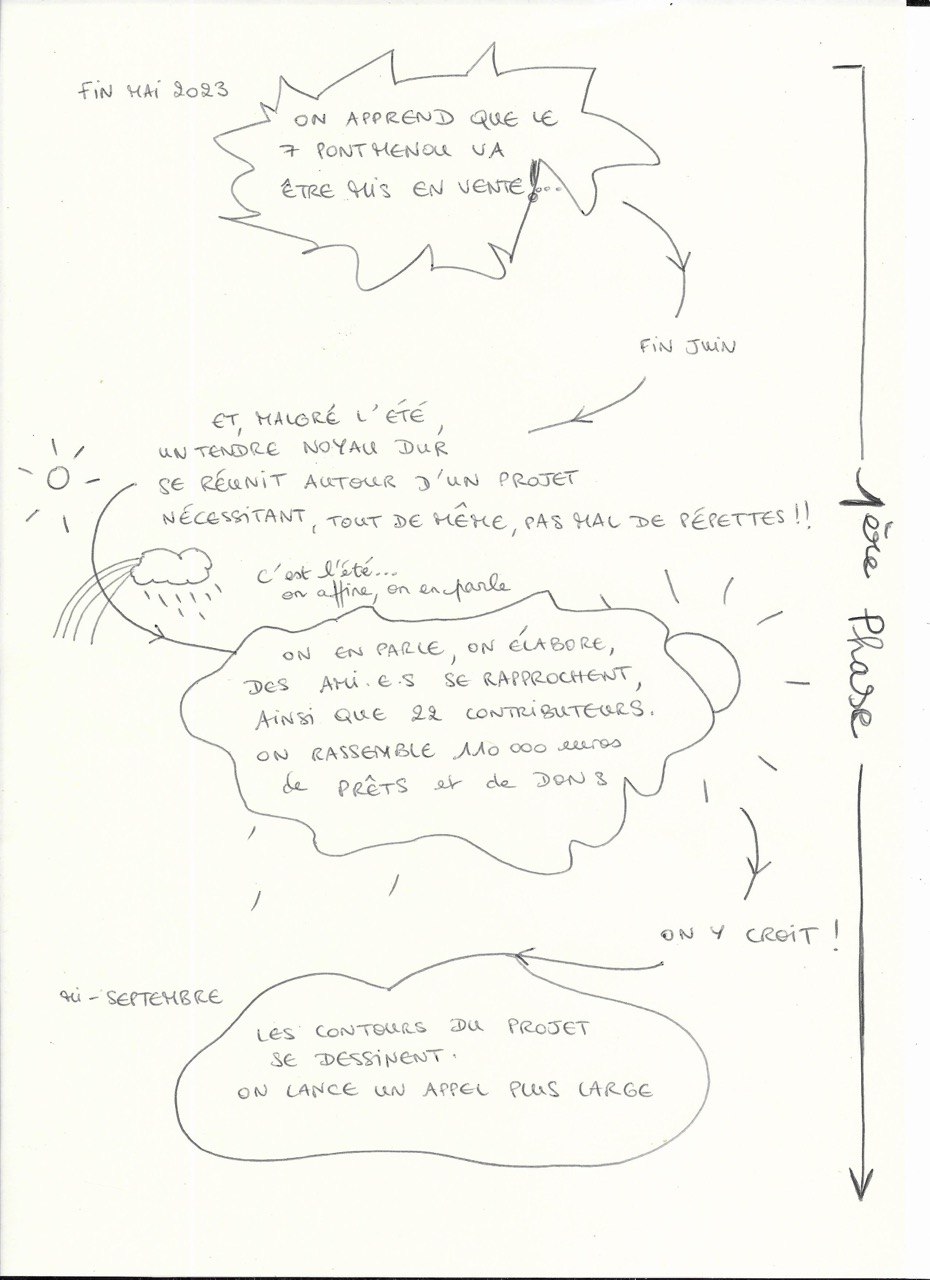 FIN MAI 2023
ON APPREND QUE LE
7 PONTMENOU VA
ÊTRE MIS EN VENTE!...
FIN JUIN
ET, MALGRÉ L'ÉTÉ,
UN TENDRE NOYAU DUR
SE RÉUNIT AUTOUR D'UN PROJET
NÉCESSITANT, TOUT DE MÊME, PAS MAL DE PÉPETTES!!
C'est l'été...
on affine, on en parle
ON EN PARLE, ON ÉLABORE,
DES AMI.E.S SE RAPPROCHENT,
AINSI QUE 22 CONTRIBUTEURS.
ON RASSEMBLE 110 000 euros
de PRÊTS et de DONS
ON Y CROIT !
MI-SEPTEMBRE
LES CONTOURS DU PROJET
SE DESSINENT.
ON LANCE UN APPEL PLUS LARGE
1ère Phase